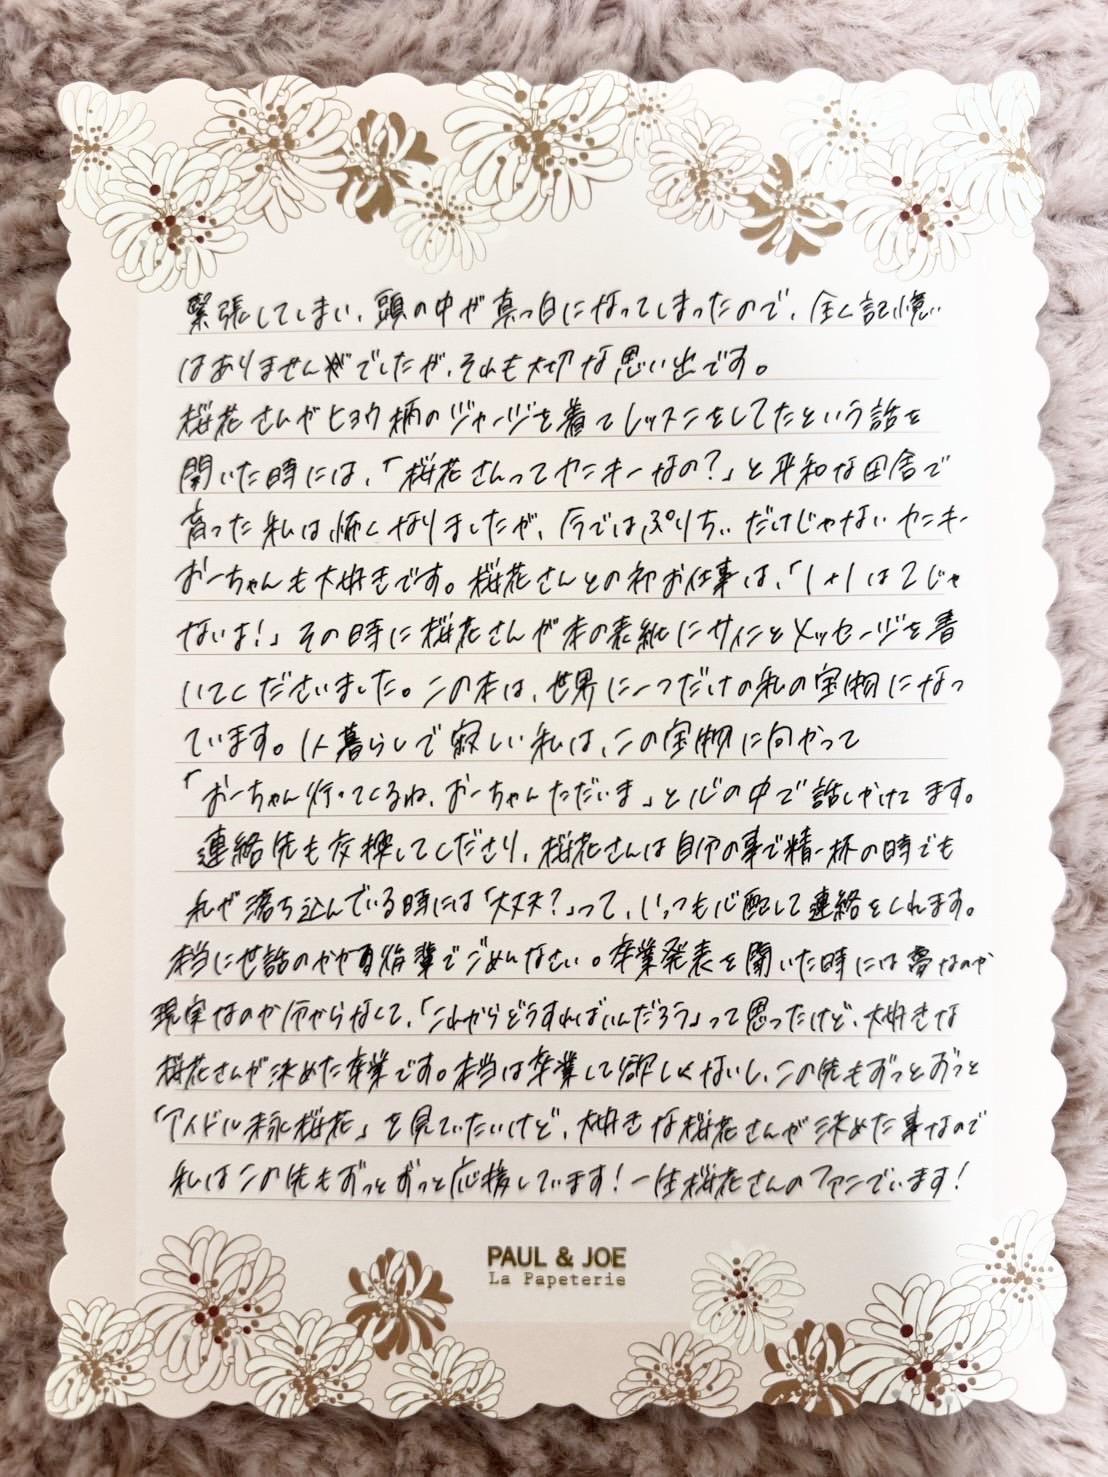 緊張してしまい、頭の中が真っ白になってしまったので、全く記憶
はありませんでしたが、それも大切な思い出です。
桜花さんがヒョウ柄のジャージを着てレッスンをしてたという話を
聞いた時には、「桜花さんってヤンキーなの？」と平和な田舎で
育った私は怖くなりましたが、今ではぷりちぃだけじゃないヤンキー
おーちゃんも大好きです。桜花さんとの初お仕事は、「1+1は2じゃ
ないよ！」その時に桜花さんが本の表紙にサインとメッセージを書
いてくださいました。この本は、世界に一つだけの私の宝物になっ
ています。1人暮らしで寂しい私は、この宝物に向かって
「おーちゃん行ってくるね、おーちゃんただいま」と心の中で話しかけてます。
連絡先も交換してくださり、桜花さんは自分の事で精一杯の時でも
私が落ち込んでいる時には「大丈夫？」って、いっつも心配して連絡をくれます。
本当に世話のかかる後輩でごめんなさい。卒業発表を聞いた時には夢なのか
現実なのか分からなくて、「これからどうすればいいんだろう」って思ったけど、大好きな
桜花さんが決めた卒業です。本当は卒業して欲しくないし、この先もずっとずっと
「アイドル未永桜花」を見ていたいけど、大好きな桜花さんが決めた事なので
私はこの先もずっとずっと応援しています！一生桜花さんのファンでいます！
PAUL & JOE
La Papeterie